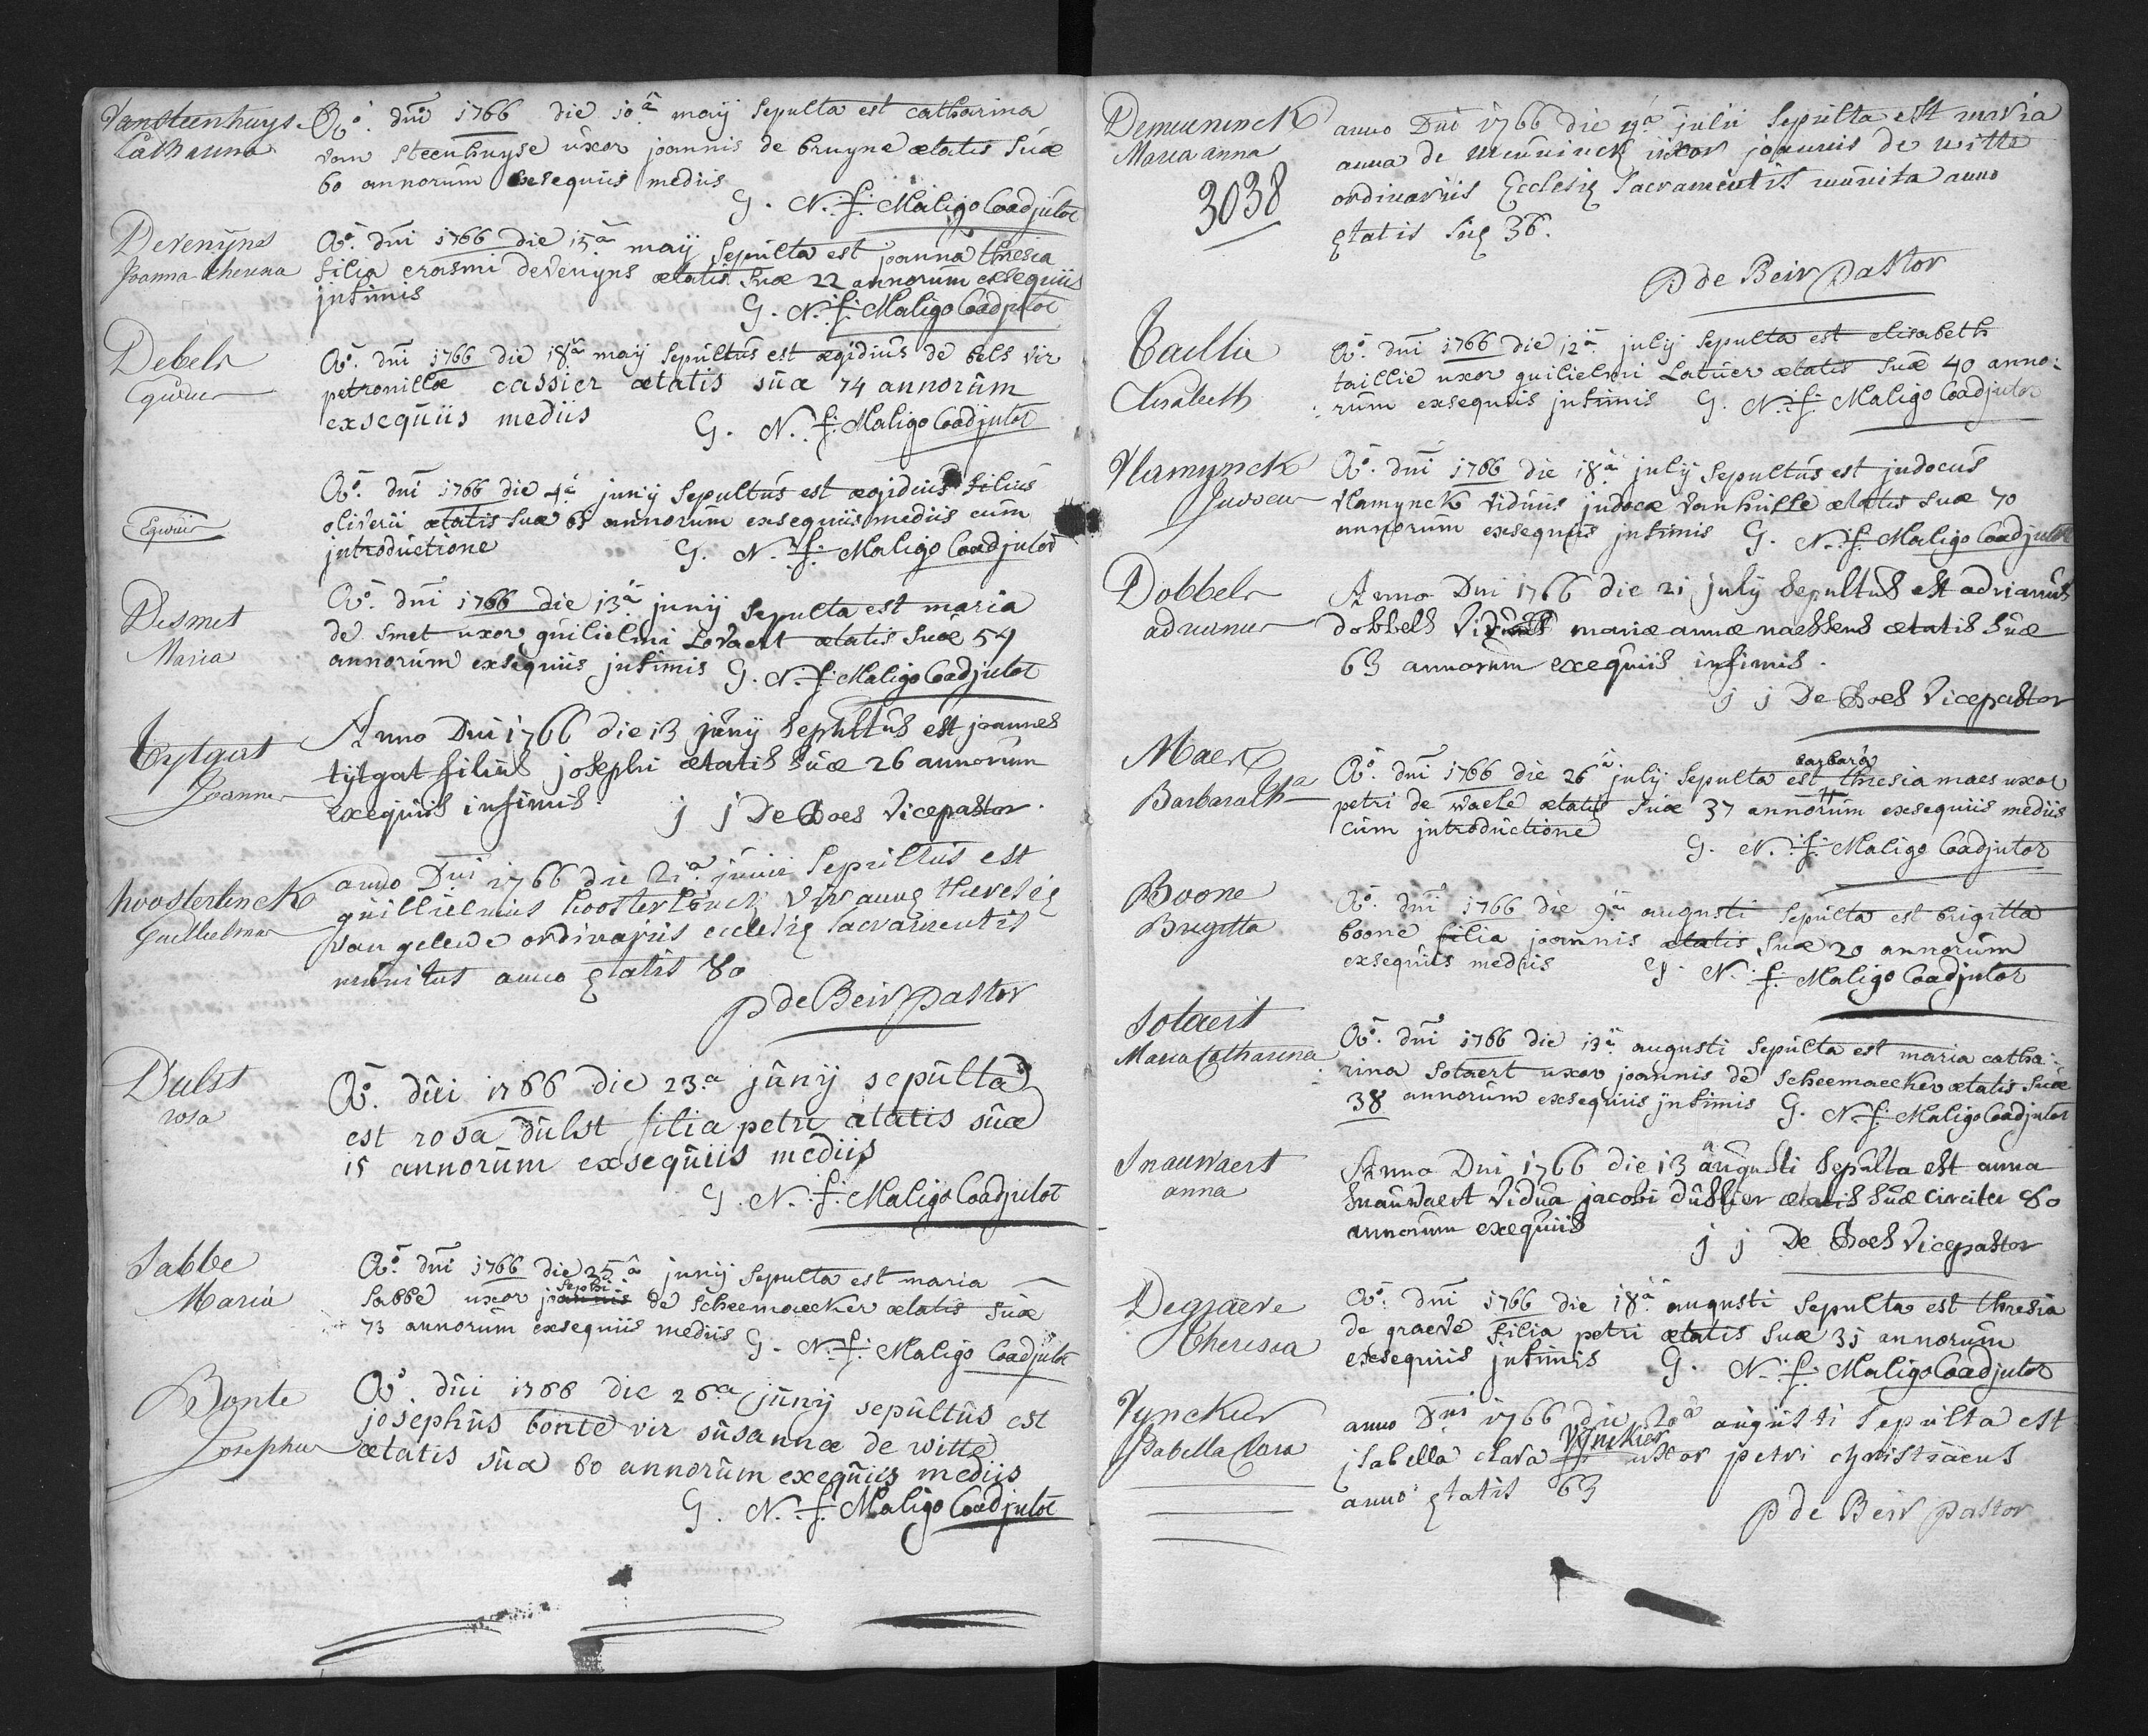 Vansteenhuyse
Catharina
Aº. dni 1766 die 10ª maij sepulta est catharina
van steenhuyse uxor joannis de bruyne ætatis suæ
60 annorum exsequiis mediis
G. N. f. Maligo Coadjutor
Devenijns
Joanna theresia
Aº. dni 1766 die 15ª maij sepulta est joanna thresia
filia erasmi devenijns ætatis suæ 22 annorum exsequiis
infimis
G. N. f. Maligo Coadjutor
Debels
Egidius
Aº. dni 1766 die 18ª maij sepultus est ægidius de bels vir
petronillæ cassier ætatis suæ 74 annorum
exsequiis mediis
G. N. f. Maligo Coadjutor
Egidius
Aº. dni 1766 die 4ª junij sepultus est ægidius filius
oliverii ætatis suæ 65 annorum exsequiis mediis cum
introductione
G. N. f. Maligo Coadjutor
Desmet
Maria
Aº. dni 1766 die 13ª junij sepulta est maria
de smet uxor guilielmi Lovaert ætatis suæ 54
annorum exsequiis infimis G. N. f. Maligo Coadjutor
Tytgat
Joannes
Anno Dni 1766 die 13 junij sepultus est joannes
tijtgat filius josephi ætatis suæ 26 annorum
exequiis infimis. j j De Does vicepastor.
hoosterlinck
Guillielmus
anno Dni 1766 die 21ª junii sepultus est
guillielmus hoosterlinck vir annę theresię
van gelewe ordinariis ecclesię sacramentis
munitus anno ętatis 80
P de Beir pastor
Dulst
rosa
Aº. dni 1766 die 23ª junij sepulta
est rosa dulst filia petri ætatis suæ
15 annorum exsequiis mediis
G. N. f. Maligo Coadjutor
Sabbe
Maria
Aº. dni 1766 die 25ª junij sepulta est maria
sabbe uxor josephi de scheemaecker ætatis suæ
73 annorum exsequiis mediis G. N. f. Maligo Coadjutor
Bonte
Josephus
Aº. dni 1766 die 26ª junij sepultus est
josephus bonte vir susannæ de witte
ætatis suæ 60 annorum exequiis mediis
G. N. f. Maligo Coadjutor
Demeuninck
Maria anna
3038
anno Dni 1766 die 4ª julii sepulta est maria
anna de meuninck uxor joannis de witte
ordinariis Ecclesię sacramentis munita anno
ętatis suę 36.
P de Beir pastor
Taillie
Elisabeth
Aº. dni 1766 die 12ª julij sepulta est elisabeth
taillie uxor guilielmi Latuer ætatis suæ 40 anno:
:rum exsequiis infimis G. N. f. Maligo Coadjutor
Vlamynck
Judocus
Aº. dni 1766 die 18ª julij sepultus est judocus
vlamynck viduus judocæ vanhulle ætatis suæ 70
annorum exsequiis infimis G. N. f. Maligo Coadjutor
Dobbels
adrianus
Anno Dni 1766 die 21 julij sepultus est adrianus
dobbels viduus mariæ annæ naessens ætatis suæ
63 annorum exequiis infimis.
j j De Does vicepastor
Maes
Barbara thª
Aº. dni 1766 die 26ª julij sepulta est barbara thresia maes uxor
petri de waele ætatis suæ 37 annorum exsequiis mediis
cum introductione
G. N. f. Maligo Coadjutor
Boone
Brigitta
Aº. dni 1766 die 9ª augusti sepulta est brigitta
boone filia joannis ætatis suæ 20 annorum
exsequiis mediis G. N. f. Maligo Coadjutor
Sotaert
Maria Catharina
Aº. dni 1766 die 13ª augusti sepulta est maria catha:
:rina sotaert uxor joannis de scheemaecker ætatis suæ
38 annorum exsequiis infimis G. N. f. Maligo Coadjutor
Snauwaert
anna
Anno Dni 1766 die 13ª augusti sepulta est anna
snauwaert vidua jacobi dullier ætatis suæ circiter 80
annorum exequiis
j j De Does vicepastor
Degraeve
Theresia
Aº. dni 1766 die 18ª augusti sepulta est thresia
de graeve filia petri ætatis suæ 35 annorum
exsequiis infimis G. N. f. Maligo Coadjutor
Vynckier
Isabella Clara
anno Dni 1766 die 20ª augusti sepulta est
isabella clara vynckier uxor petri christiaens
anno ętatis 63
P de Beir pastor